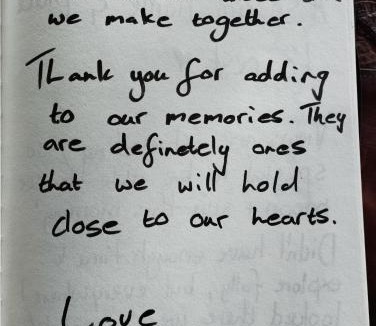 we make together.
Thank you for adding
to our memories. They
are definetely ones
that we will hold
close to our hearts.
Love